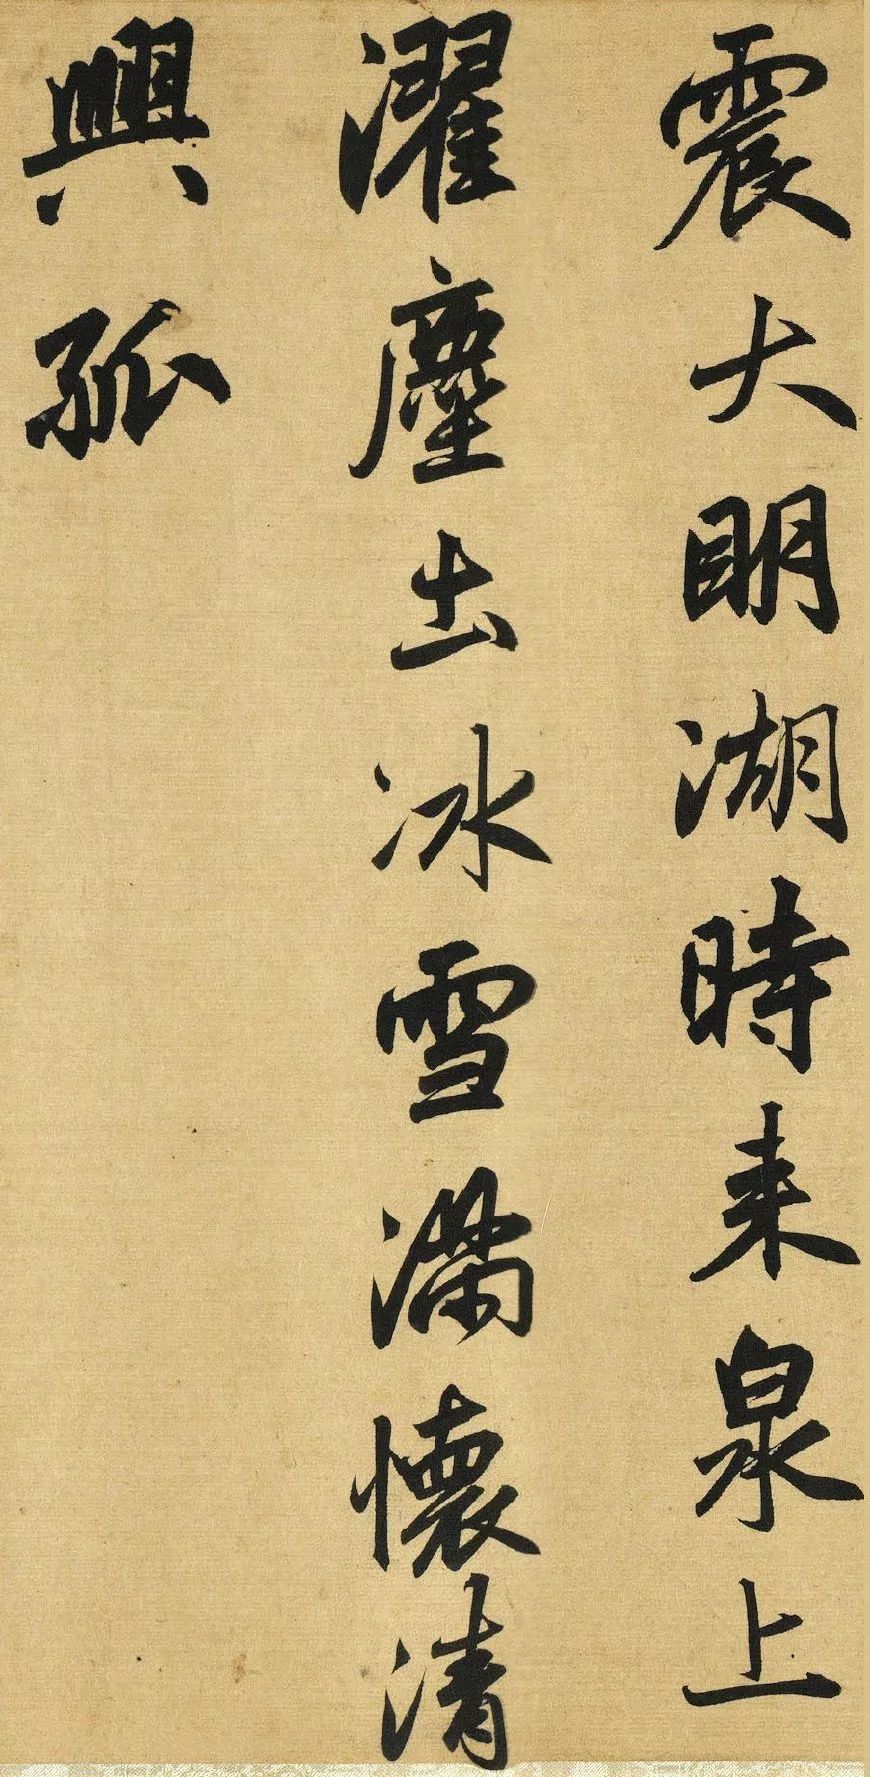 震大明湖時來泉上
濯塵出冰雪滿懷清
興孤